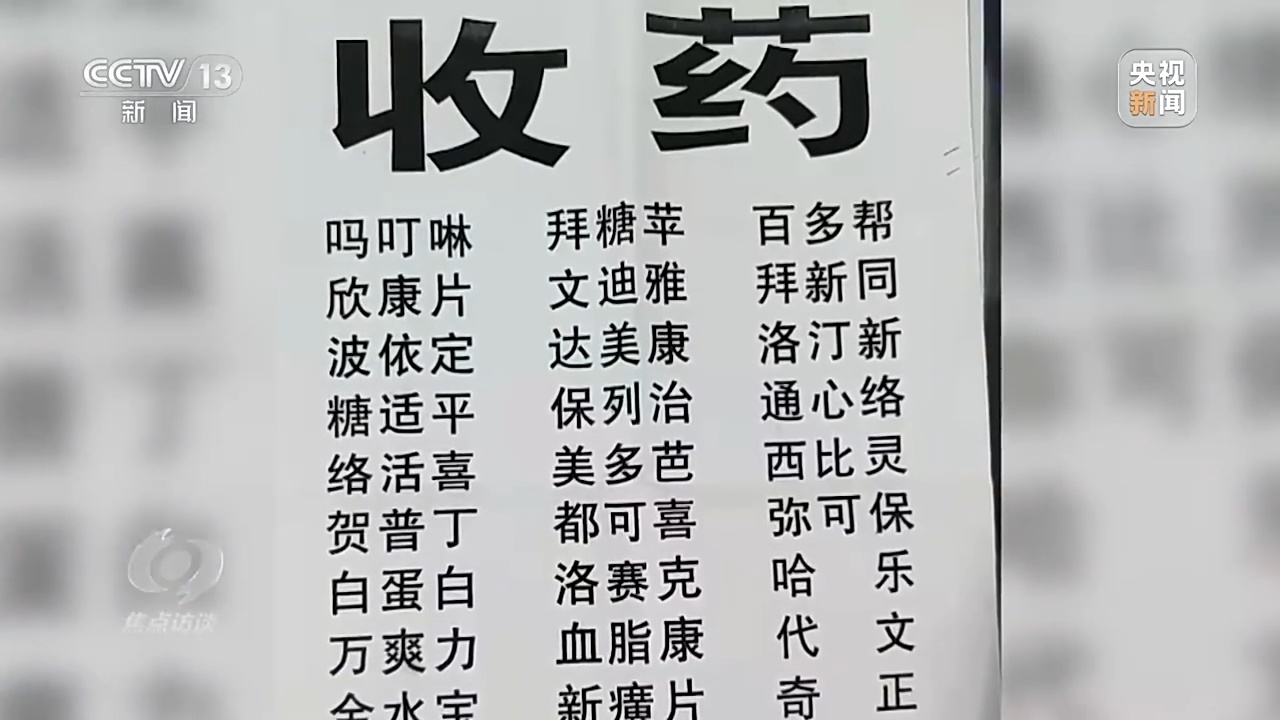 CCTV 13
新闻
央视
新闻
收药
吗叮啉 拜糖苹 百多帮
欣康片 文迪雅 拜新同
波依定 达美康 洛汀新
糖适平 保列治 通心络
络活喜 美多芭 西比灵
贺普丁 都可喜 弥可保
白蛋白 洛赛克 哈乐
万爽力 血脂康 代文
金水宝 新癀片 奇正
焦点访谈